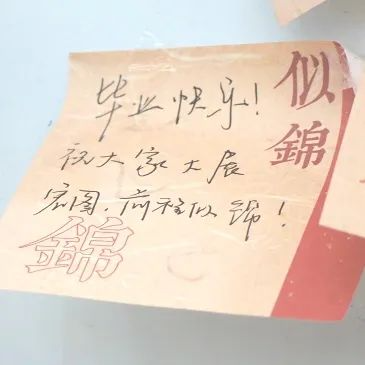 毕业快乐!
祝大家大展
宏图,前程似锦!
似錦
錦